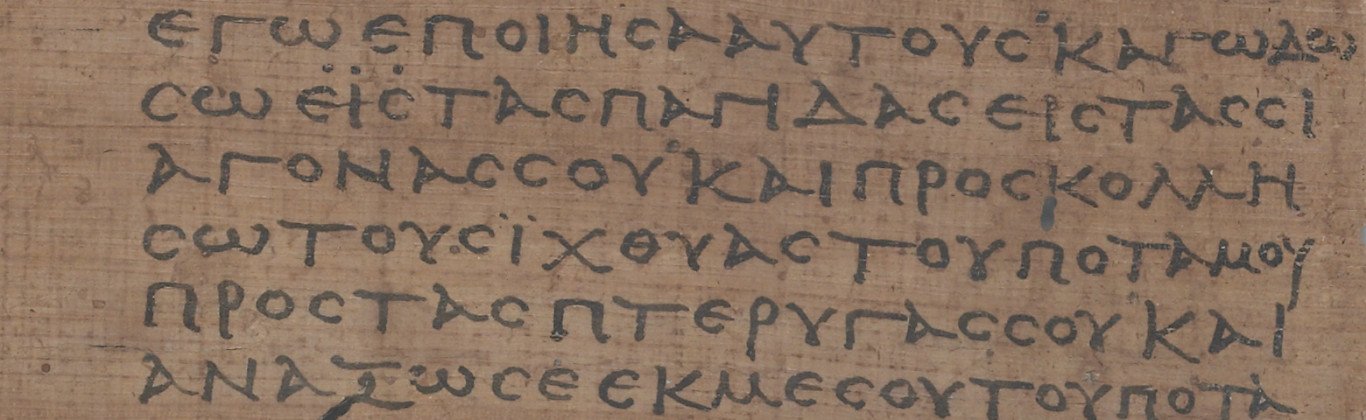 ΕΓΩΕΠΟΙΗϹΑΑΥΤΟΥϹΚΑΓΩΔΩ
ϹΩΕΪϹΤΑϹΠΑΓΙΔΑϹΕΙϹΤΑϹϹΙ
ΑΓΟΝΑϹϹΟΥΚΑΙΠΡΟϹΚΟΛΛΗ
ϹΩΤΟΥϹΪΧΘΥΑϹΤΟΥΠΟΤΑΜΟΥ
ΠΡΟϹΤΑϹΠΤΕΡΥΓΑϹϹΟΥΚΑΙ
ΑΝΑΞΩϹΕΕΚΜΕϹΟΥΤΟΥΠΟΤΑ